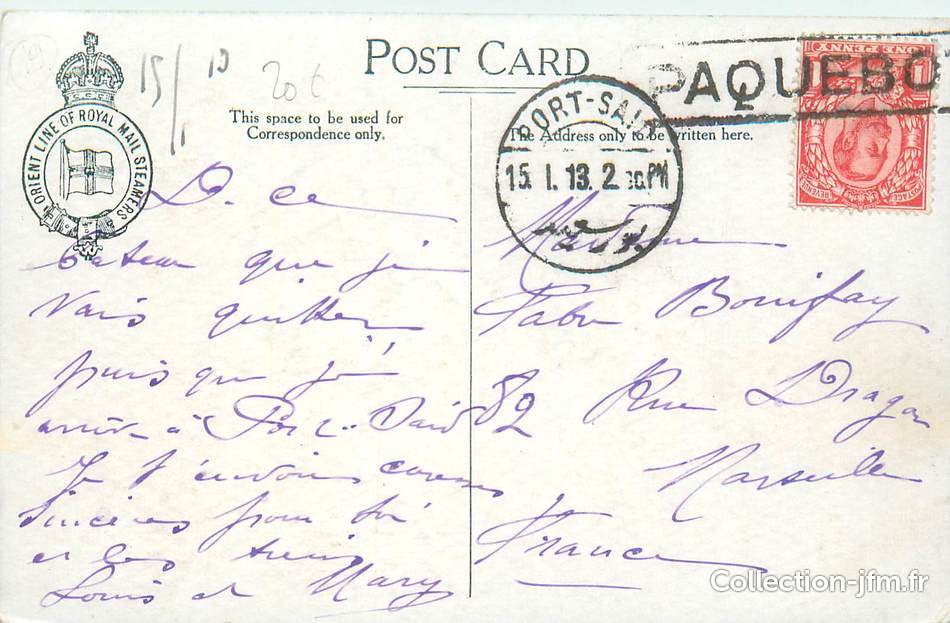 POST CARD
ORIENT LINE OF ROYAL MAIL STEAMERS
15/1 13
This space to be used for
Correspondence only.
The Address only to be written here.
PORT-SAID
15. I. 13. 2 30.PM
بورسعيد
PAQUEBO
ONE PENNY
1 1
POSTAGE REVENUE
D. ce
bateau que je
vais quitter
puis que j'
arrive à Port-Said
Je t'envois caresses
sincères pour toi
et les tiens
Louis et Mary
Madame
Fabre Bonifay
82 Rue Dragon
Marseille
France
Collection-jfm.fr